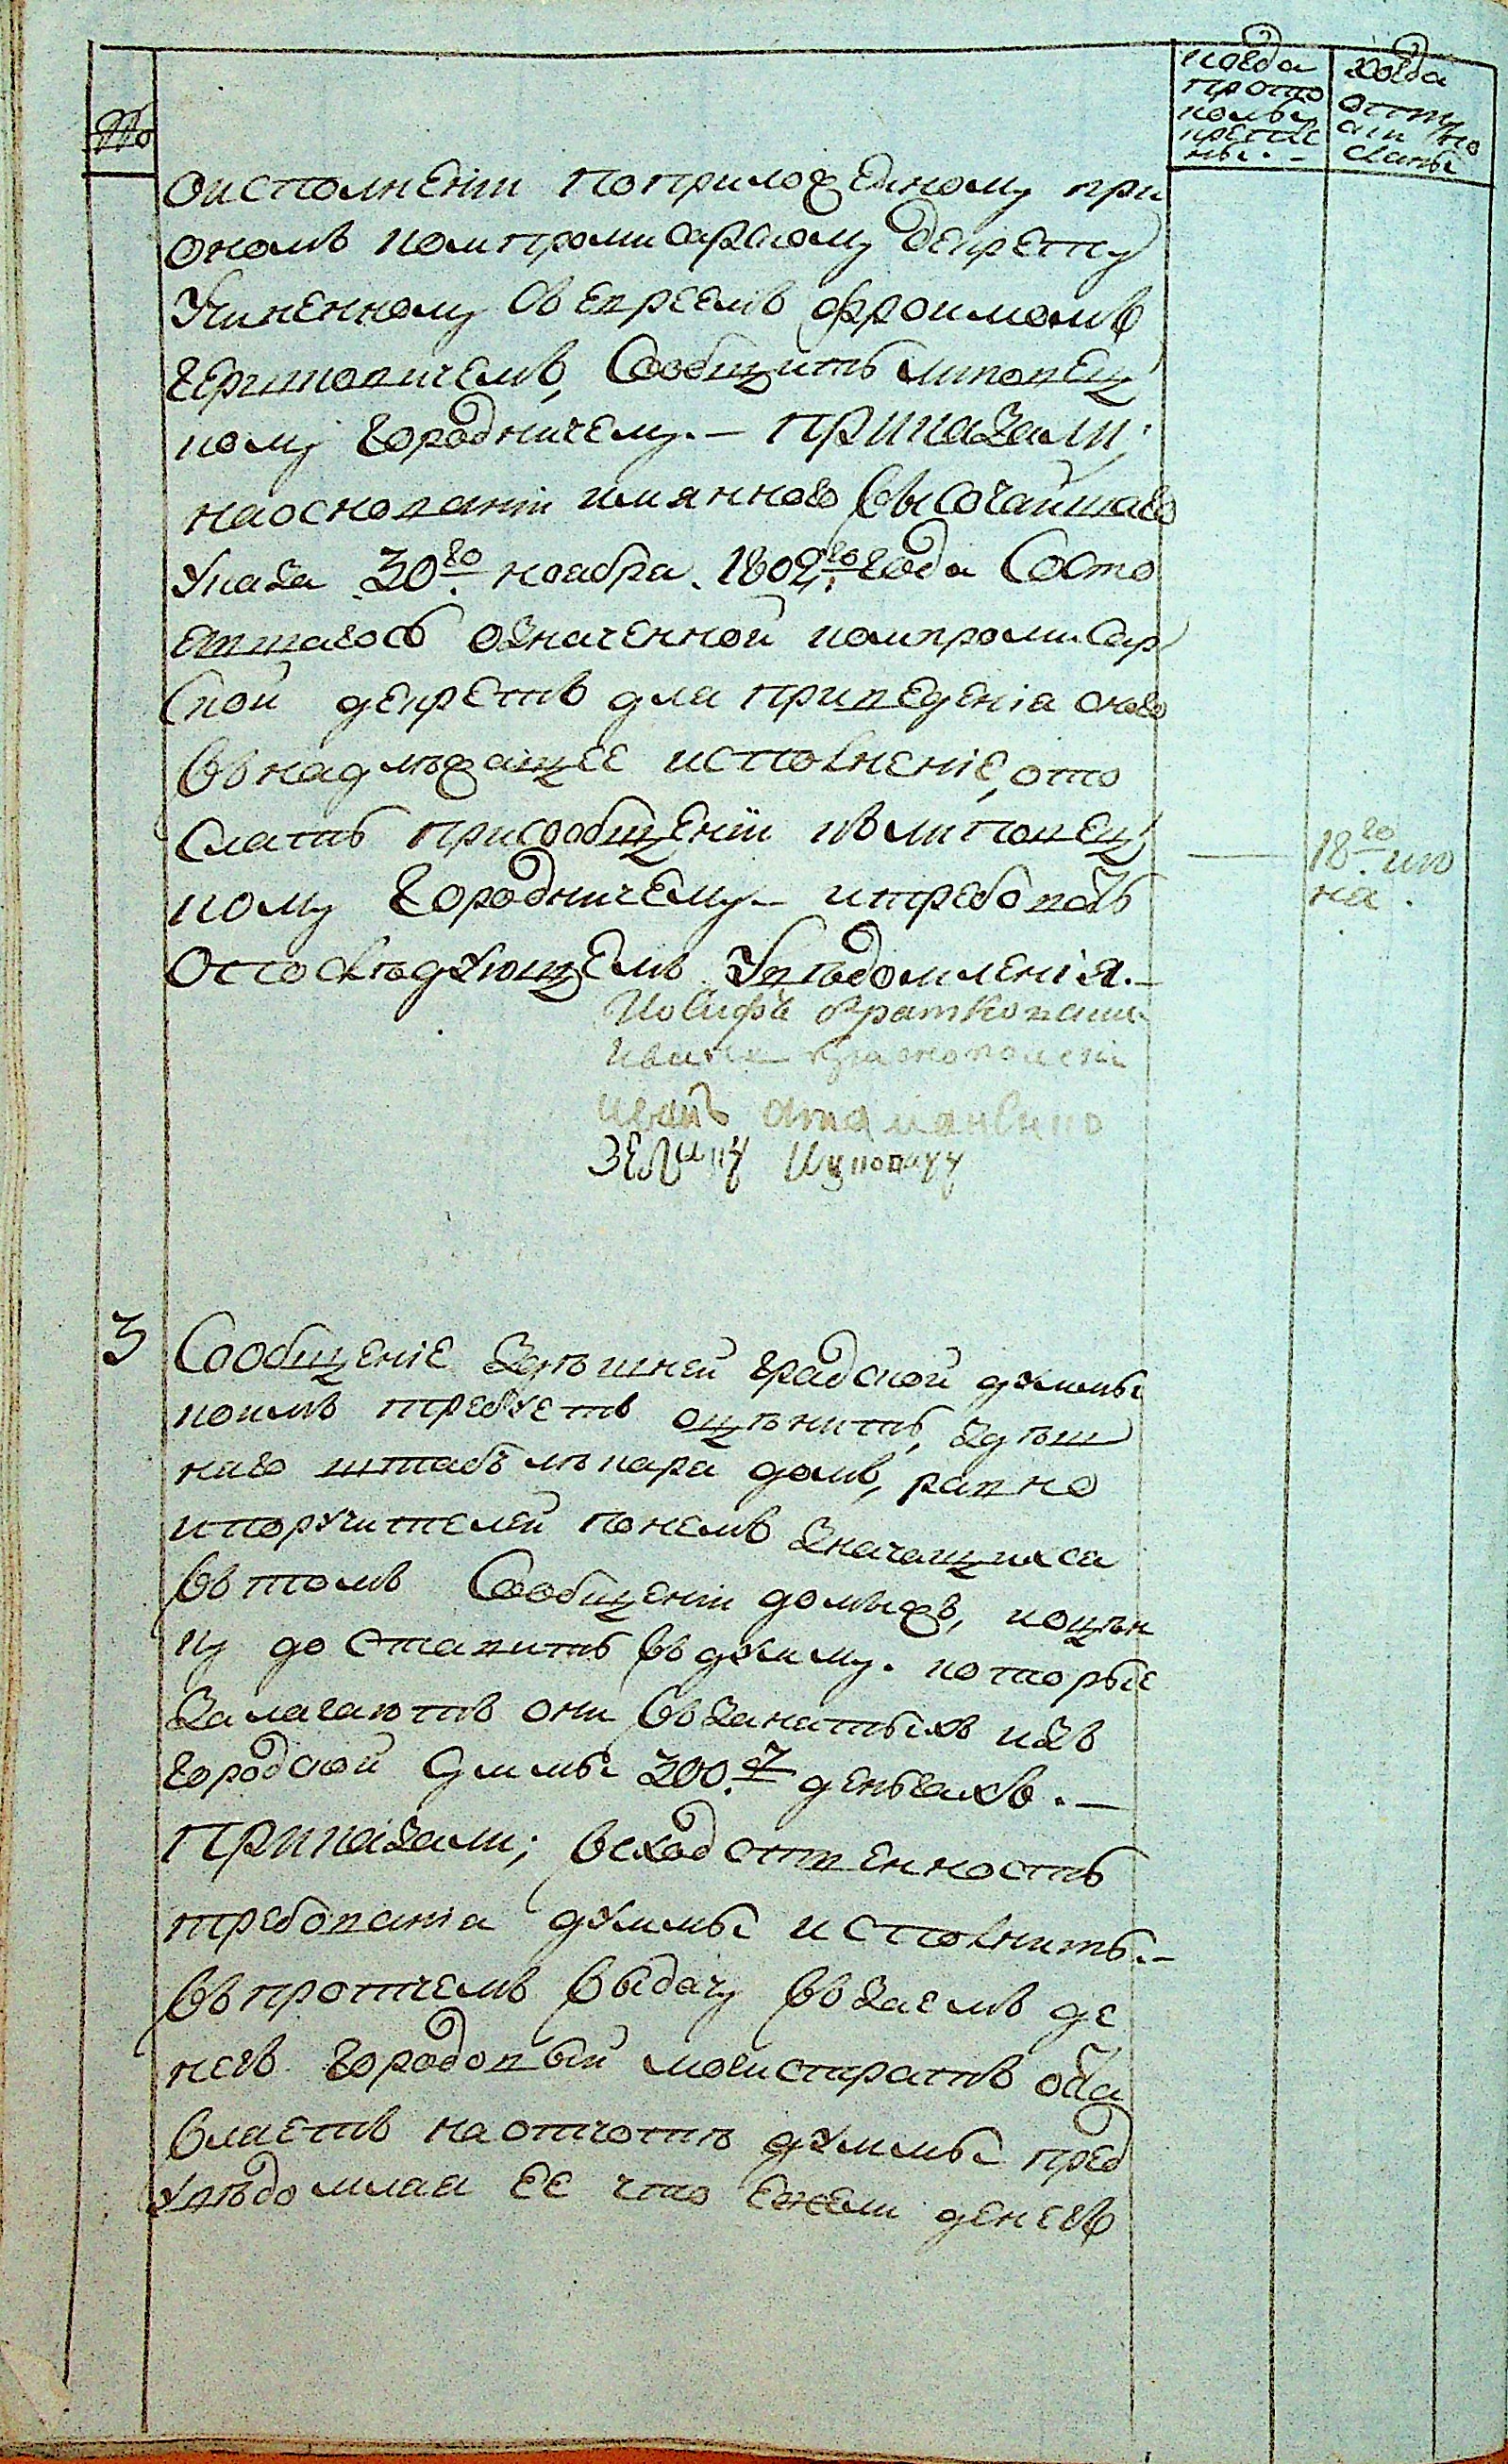 №
когда
прото
колы
препис
ны. —
когда
отпу
ски по
сланы
о исполненіи по приложенному при
ономъ компромисарскому декрету
учиненному съ евреемъ Фроимомъ
Гершковичемъ, сообщить Липовец
кому городничему. — Приказали;
на основаніи имяннаго высочайшаго
указа 30го ноября. 1802го года состо
явшагось означенной компромисар
ской декретъ для приведенія онаго
въ надлѣжащее исполненіе, ото
слать при сообщеніи къ Липовец
кому городничему — и требовать
о послѣдующемъ увѣдомленія. —
18го ию
ня.
Иосифъ
Иванъ
Иванъ
3
Сообщеніе здѣшней градской думы
коимъ требуетъ оцѣнить, здѣш
наго штабъ лѣкаря домъ, равно
и поручителей по немъ значащихся
въ томъ сообщеніи домы жъ, и оцѣн
ку доставить въ думу. которые
залагаютъ они въ занятыхъ изъ
городской думы 300. р деньгахъ. —
Приказали; всходственность
требованія думы исполнить. —
въ протчемъ выдачу въ заемъ де
негъ городовый магистратъ оста
вляетъ на отчотъ думы пред
увѣдомляя ее что ежели денегъ